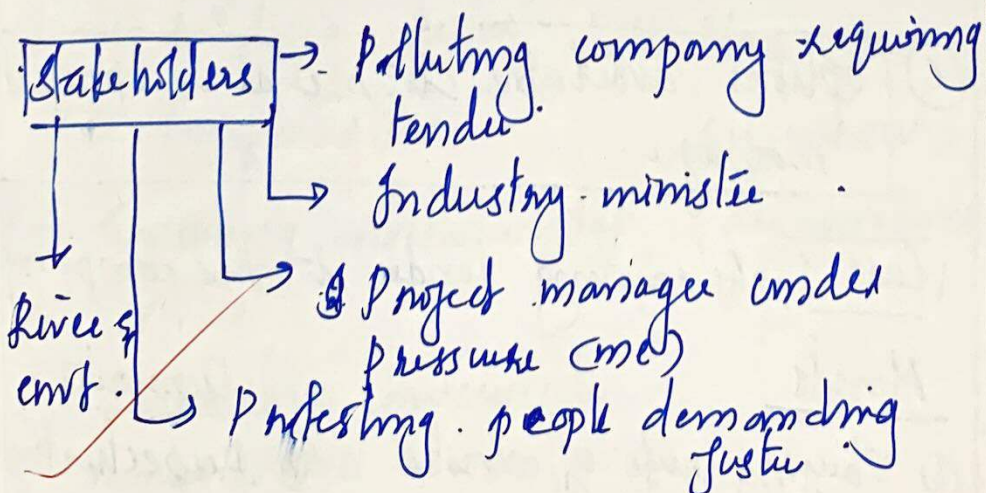 Stakeholders → Polluting company requiring
tender.
→ Industry minister.
→ Project manager under
pressure (me)
River &
envt.
→ Protesting people demanding
Justice